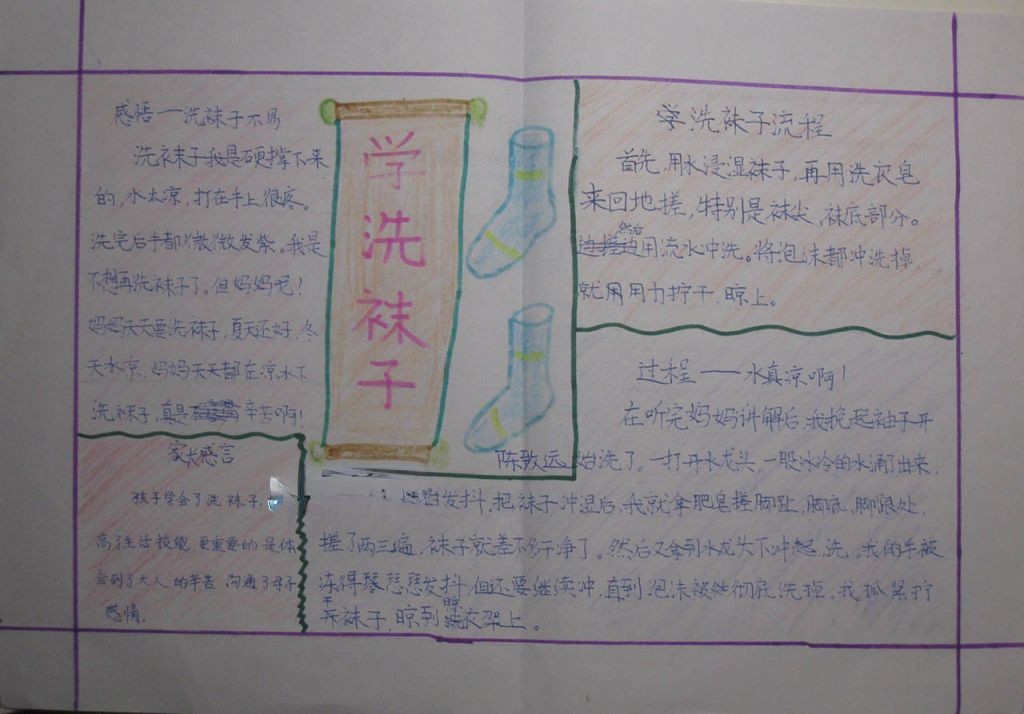 感悟—洗袜子不易
洗袜子我是硬撑下来
的，水太凉，打在手上很疼。
洗完后手都微微发紫。我是
不想再洗袜子了。但妈妈呢！
妈妈天天要洗袜子，夏天还好，冬
天水凉，妈妈天天都在凉水下
洗袜子，真是辛苦啊！
家长感言
孩子学会了洗袜子，
高了生活技能，更重要的是体
会到了大人的辛苦 沟通了母子
感情.
学
洗
袜
子
陈致远
学洗袜子流程
首先，用水浸湿袜子，再用洗衣皂
来回地搓，特别是袜尖，袜底部分。
然后
用流水冲洗。将泡沫都冲洗掉，
就用用力拧干，晾上。
过程——水真凉啊！
在听完妈妈讲解后，我挽起袖子开
始洗了。一打开水龙头，一股冰冷的水涌了出来，
发抖，把袜子冲湿后，我就拿肥皂搓脚趾，脚底，脚跟处，
搓了两三遍，袜子就差不多干净了。然后又拿到水龙头下冲洗。我的手被
冻得发抖，但还要继续冲，直到泡沫被彻底洗掉。我抓紧拧
干袜子，晾到晾衣架上。